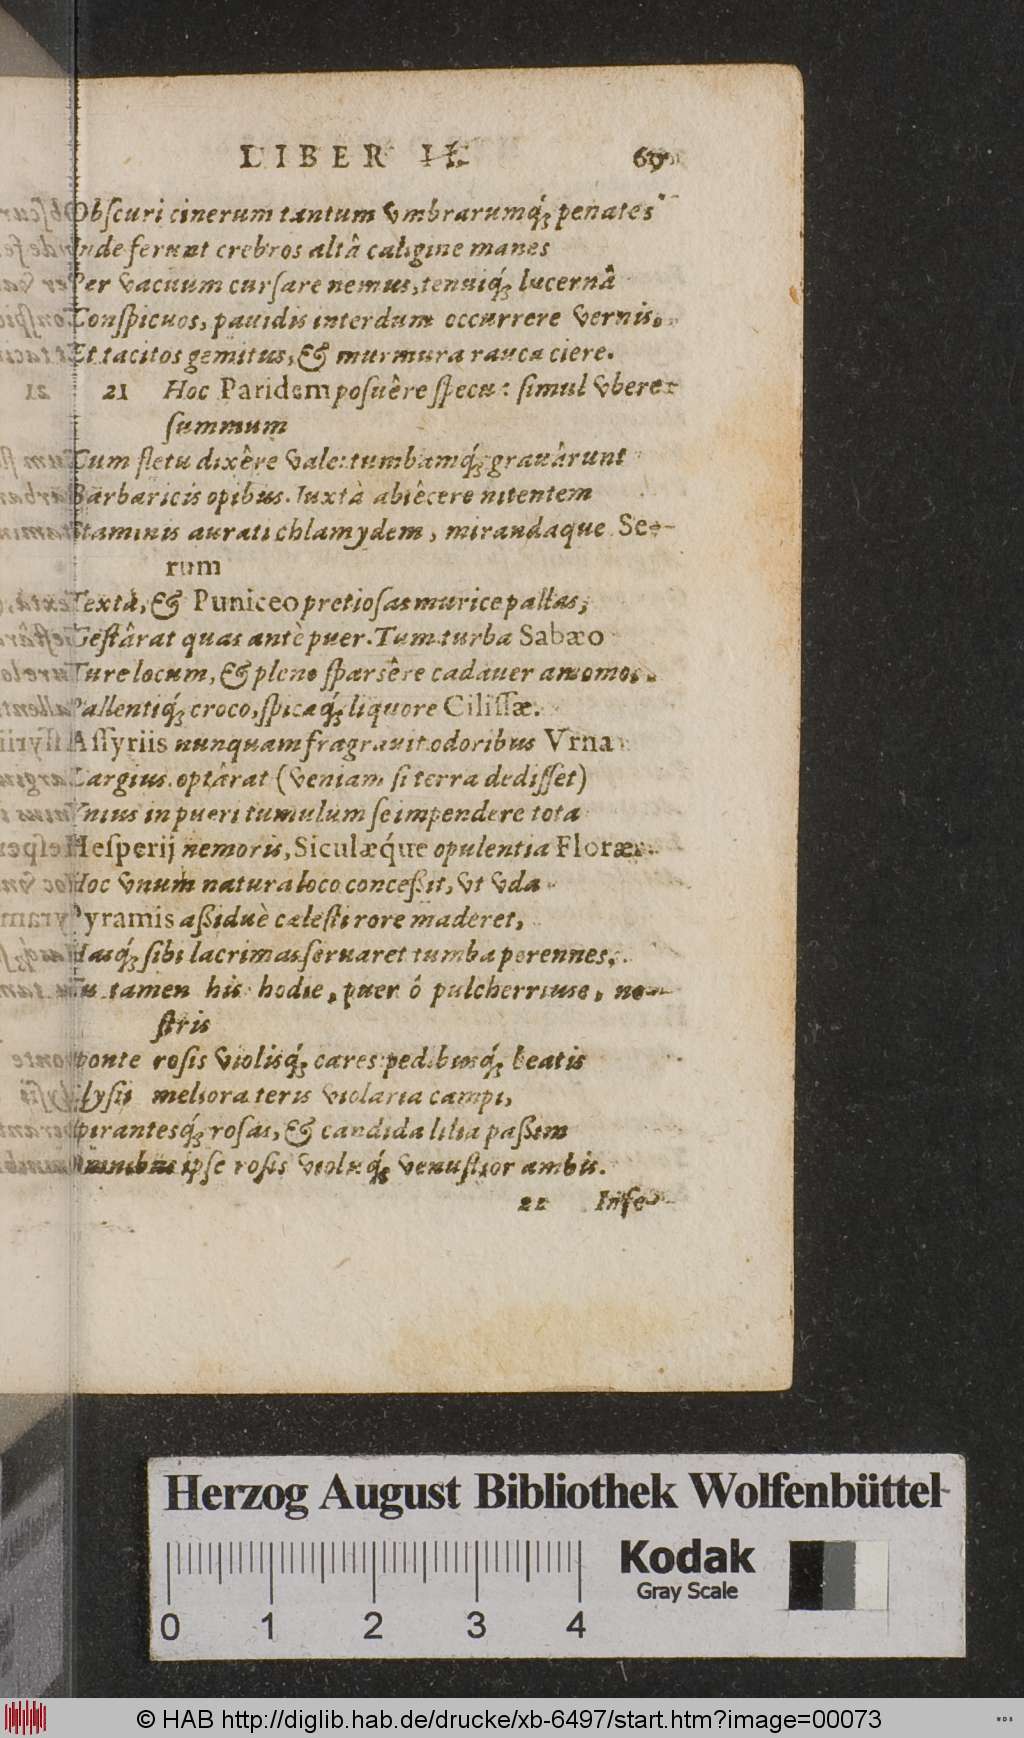 LIBER II. 69
Obſcuri cinerum tantum vmbrarumq́; penates
Inde ferunt crebros altâ caligine manes
Per vacuum curſare nemus, tenuiq́; lucernâ
Conſpicuos, pauidis interdum occurrere vernis.
Et tacitos gemitus, & murmura rauca ciere.
21 Hoc Paridem poſuêre ſpecu: ſimul vbere
ſummum
Cum fletu dixêre vale: tumbamq́; grauârunt
Barbaricis opibus. Iuxtà abiêcere nitentem
Staminis aurati chlamydem, mirandaque Se-
rum
Textà, & Puniceo pretioſas murice pallas,
Geſtârat quas antè puer. Tum turba Sabæo
Ture locum, & pleno ſparsêre cadauer amomo.
Pallentiq́; croco, ſpicaq́; liquore Ciliſſæ.
Aſſyriis nunquam fragrauit odoribus Vrna
Largius. optârat (veniam ſi terra dediſſet)
Vnius in pueri tumulum ſe impendere tota
Heſperij nemoris, Siculæq́ue opulentia Floræ.
Hoc vnum natura loco conceßit, vt vda
Pyramis aßiduè cæleſti rore maderet,
Hasq́; ſibi lacrimas ſeruaret tumba perennes.
Tu tamen his hodie, puer ô pulcherrime, no-
ſtris
ponte roſis violisq́; cares: pedibusq́; beatis
Elyſii meliora teris violaria campi,
Spirantesq́; roſas, & candida lilia paßim
Omnibus ipſe roſis violisq́; venuſtior ambis.
22 Inſe-
21
Herzog August Bibliothek Wolfenbüttel
Kodak
Gray Scale
0 1 2 3 4
© HAB http://diglib.hab.de/drucke/xb-6497/start.htm?image=00073